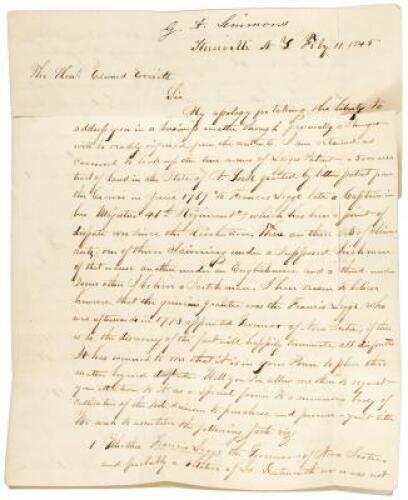 G. A. Simmons
Keeseville N. Y. Feby. 11. 1845
The Honl. Edward Everett
Sir
My apology for taking the liberty to
address you in a business matter though personally a stranger
will be readily inferred from the contents. I am retained as
counsel to look up the true owner of Legge Patent — a 5000 acre
tract of land in the State of N. York granted by letters patent from
the Crown in June 1767 "to Francis Legge late a Captain in
his Majesties 46th Regiment" & which has been a point of
dispute ever since the Revolution. There are three sets of claim
ants, one of them claiming under a supposed Irishman
of that name another under an Englishman and a third under
some other I believe a Scotchman. I have reason to believe
however that the genuine grantee was the Francis Legge who
was afterwards in 1773 appointed Governor of Nova Scotia, if this
is so the discovery of the fact will happily terminate all disputes
It has occurred to me that it is in your Power to place this
matter beyond dispute. Will you Sir allow me then to request
your attention to it as a special favor to a numerous body of
cultivators of the soil desirous to purchase and procure a quiet title
We want to ascertain the following facts viz
1. Whether Francis Legge the Governor of Nova Scotia
and probably a relation of Ld. Dartmouth was or was not